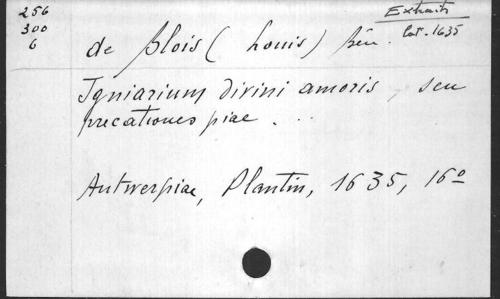 256
300
6
Extraits
Cat. 1635
de Blois (Louis) Bén.
Igniarium divini amoris, seu
precationes piae ...
Antwerpiae, Plantin, 1635, 16º